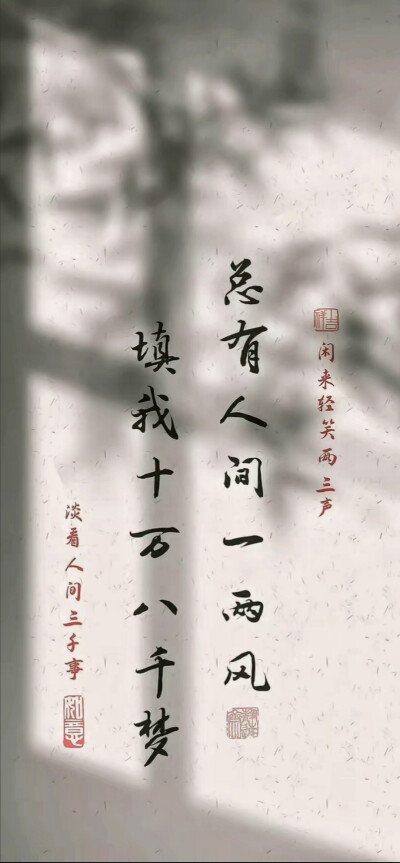 闲来轻笑两三声
总有人间一两风
填我十万八千梦
淡看人间三千事
如意